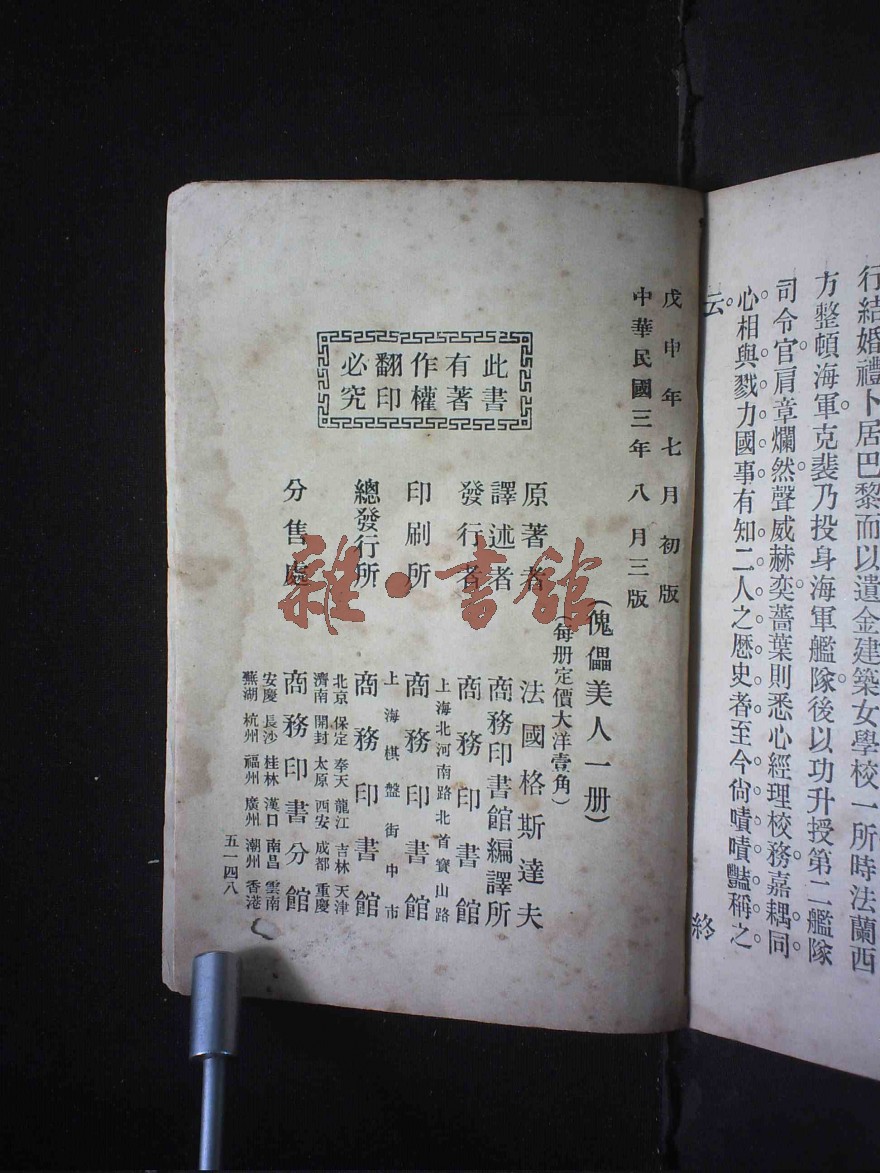 行結婚禮。卜居巴黎而以遺金建築女學校一所時法蘭西
方整頓海軍克裴乃投身海軍艦隊後以功升授第二艦隊
司令官。肩章爛然。聲威赫奕。薔葉則悉心經理校務。嘉耦同
心。相與戮力國事。有知二人之歷史者。至今尙嘖嘖豔稱之
云。
終
戊申年七月初版
中華民國三年八月三版
(傀儡美人一册)
(每册定價大洋壹角)
原著者 法國格斯達夫
譯述者 商務印書館編譯所
發行者 商務印書館
上海北河南路北首寶山路
印刷所 商務印書館
上海棋盤街中市
總發行所 商務印書館
北京 保定 奉天 龍江 吉林 天津
濟南 開封 太原 西安 成都 重慶
分售處 商務印書分館
安慶 長沙 桂林 漢口 南昌 雲南
蕪湖 杭州 福州 廣州 潮州 香港
五一四八
此書
有著
作權
翻印
必究
雜·書館